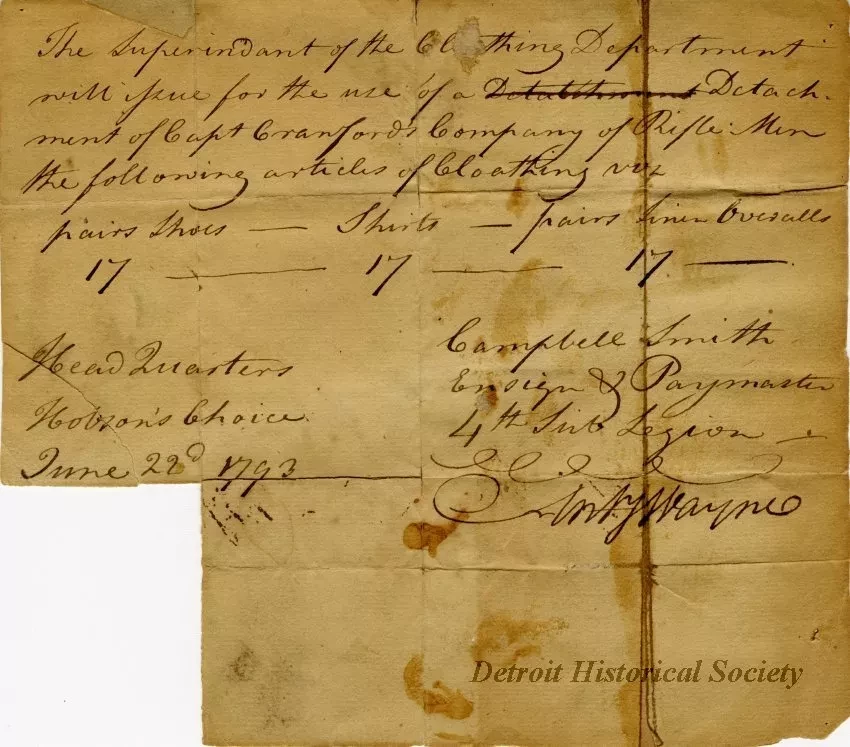 The Superindant of the Cloathing Department
will issue for the use of a Detatchment Detach-
ment of Capt Cranfords Company of Rifle Men
the following articles of Cloathing viz
pairs Shoes — Shirts — pairs linen Overalls
17 — 17 — 17 —
Head Quarters
Hobson's Choice
June 22d 1793
Campbell Smith
Ensign & Paymaster
4th Sub Legion
Anty Wayne
Detroit Historical Society